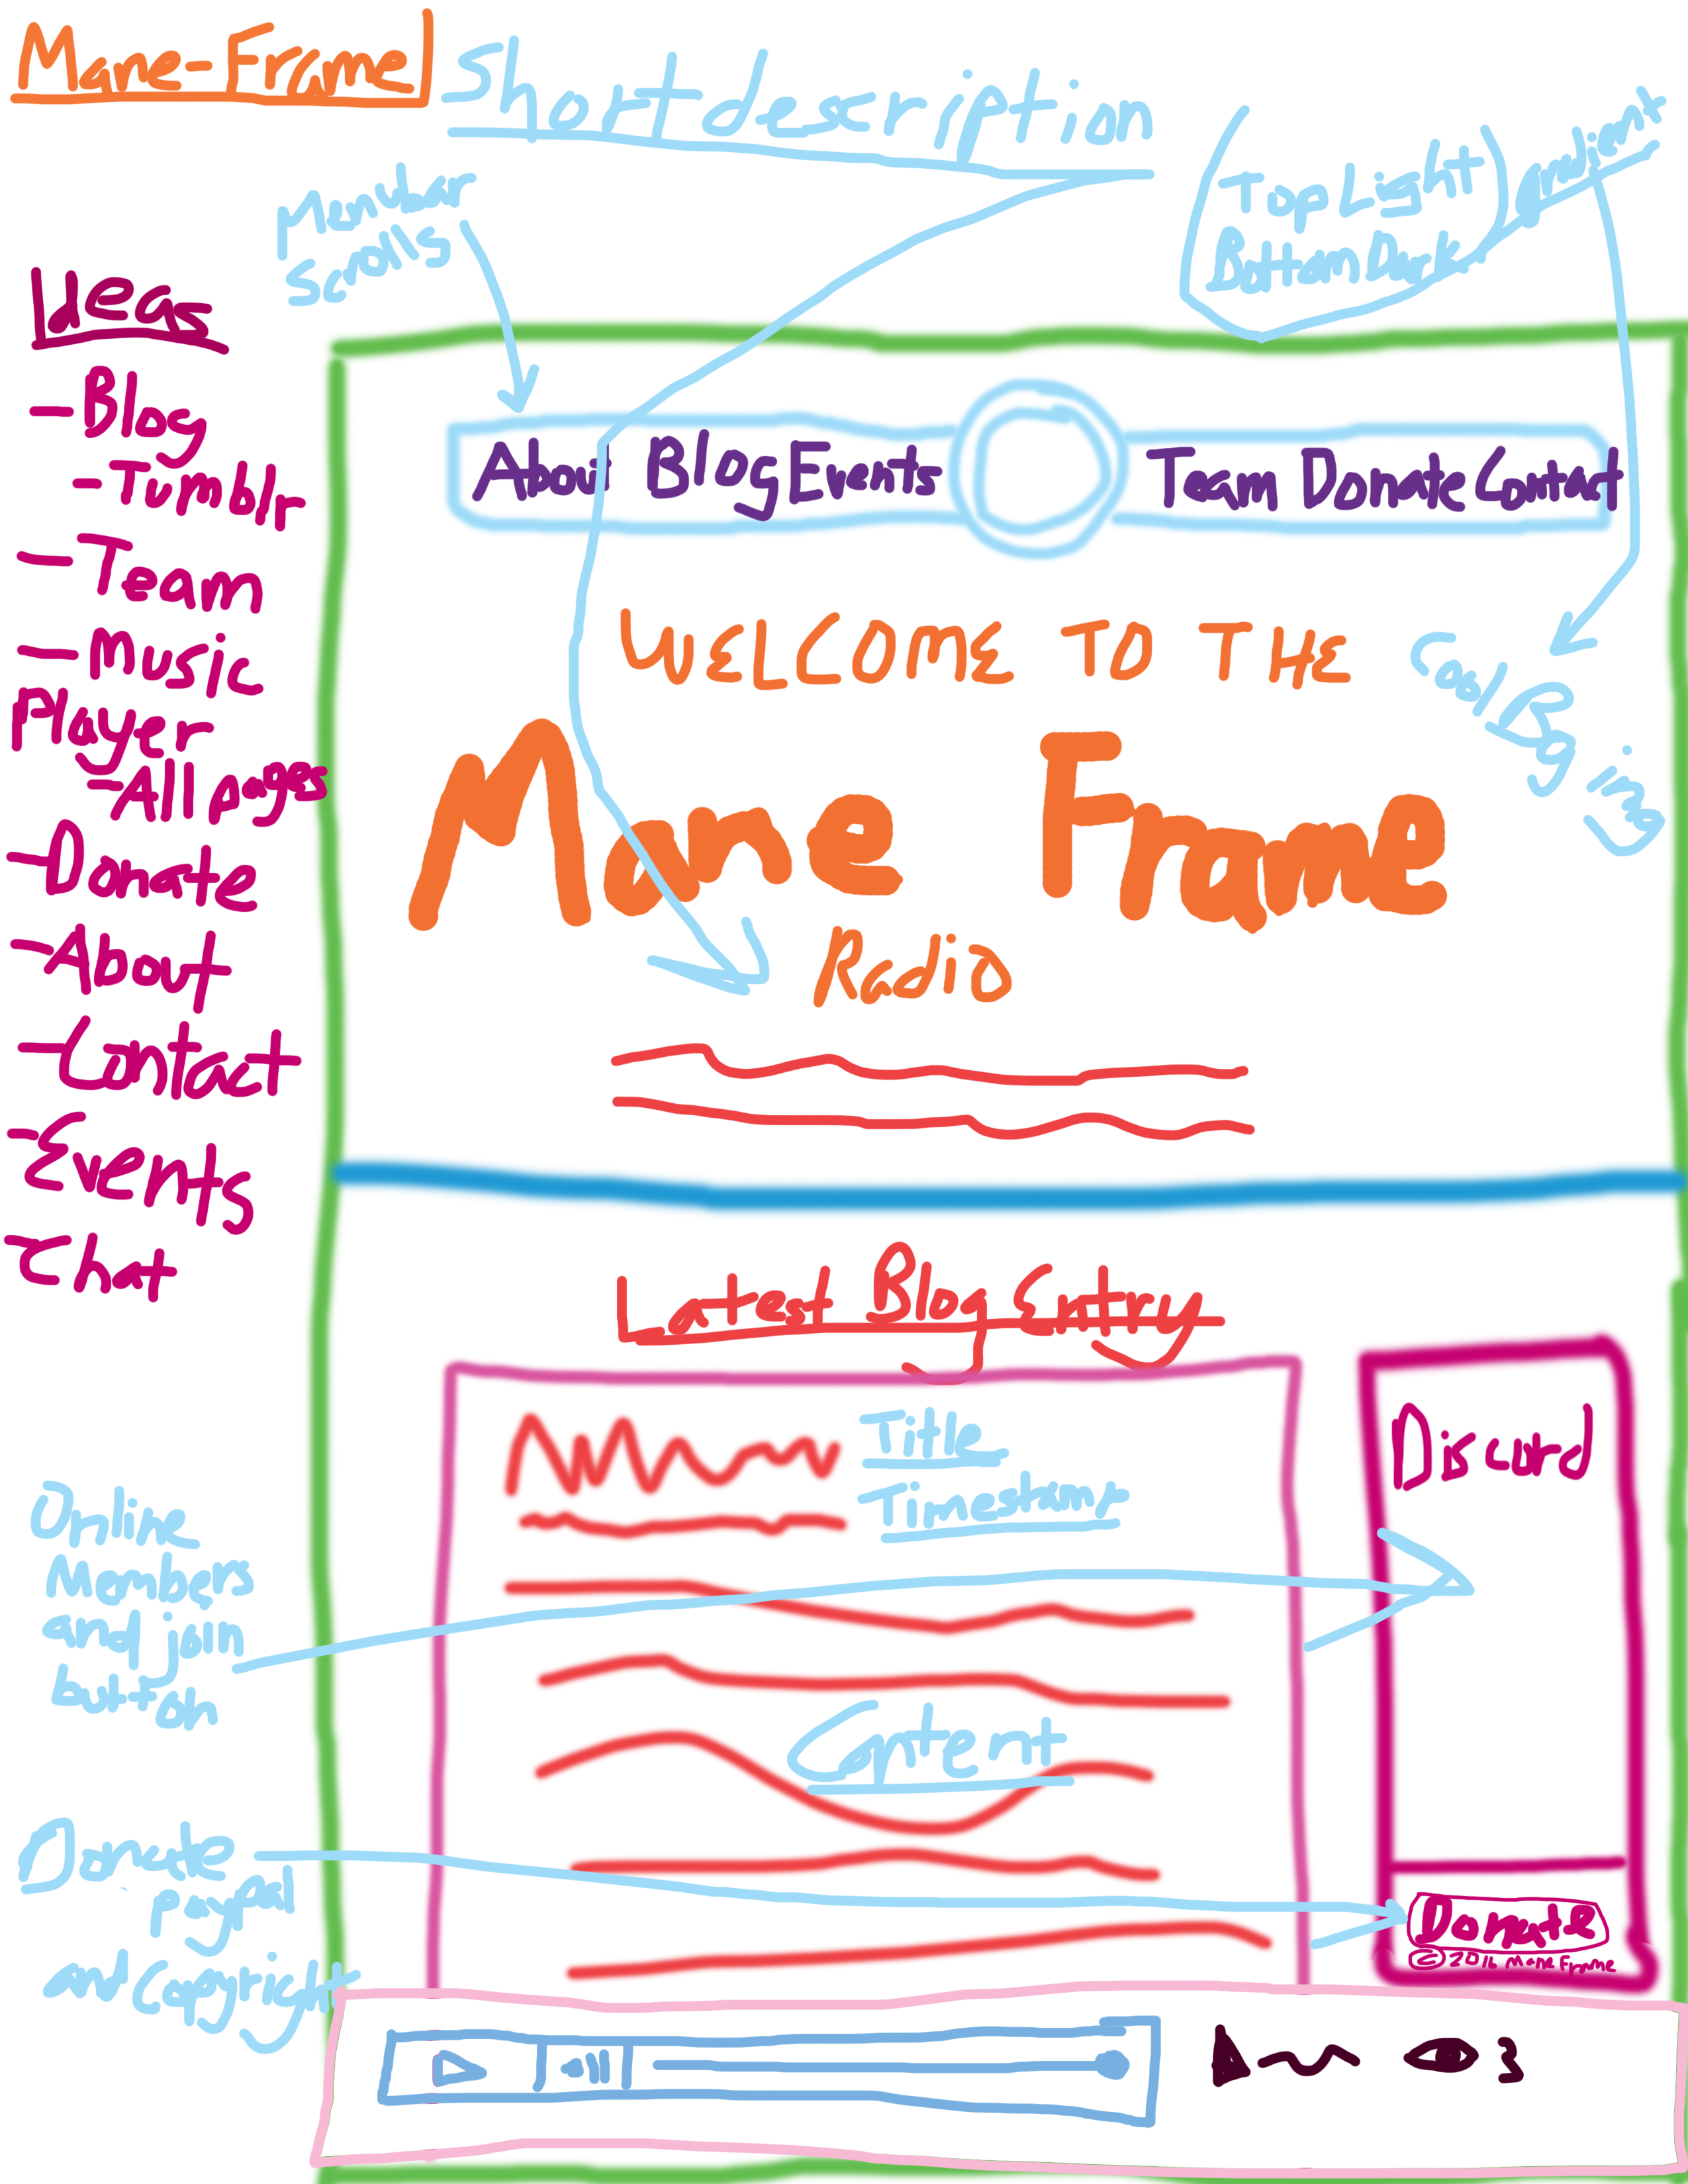 Mane-Frame
Short description
Menubar
scrolls
Top Light
Bottom Dark
gradient
Ideas
- Blog
- Tumblr
- Team
- Music
Player
- All pages
- Donate
- About
- Contact
- Events
- Chat
About Blog Events
Team Donate Contact
WELCOME TO THE
Mane Frame
Radio
Cool Bg img
Latest Blog Entry
Title
Timestamp
Content
Discord
Online
Members
and join
button
Donate
paypal
and Copyright
Donate
© 2016 Mane Frame
3